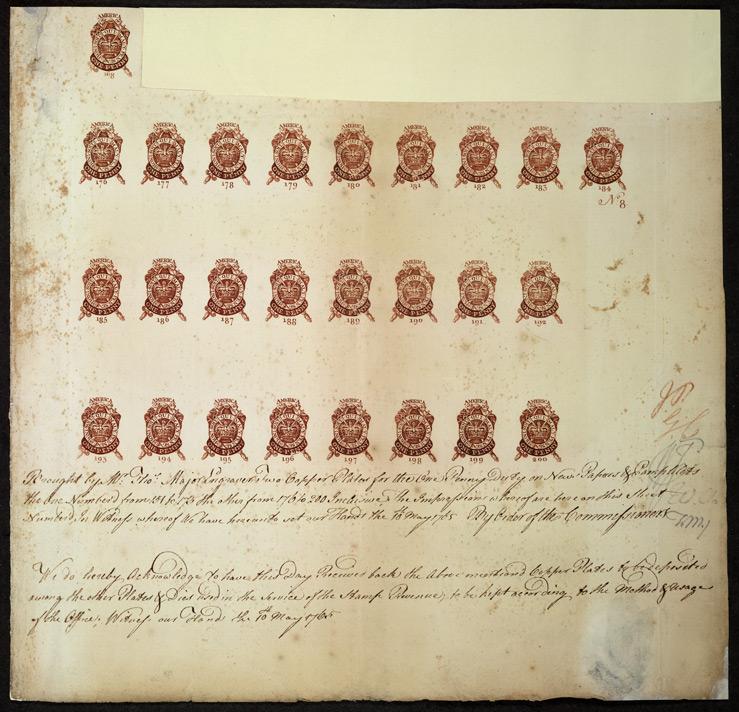 AMERICA
HONI SOIT QUI MAL Y PENSE
ONE PENNY
168
AMERICA AMERICA AMERICA AMERICA AMERICA AMERICA AMERICA AMERICA AMERICA
ONE PENNY ONE PENNY ONE PENNY ONE PENNY ONE PENNY ONE PENNY ONE PENNY ONE PENNY ONE PENNY
176 177 178 179 180 181 182 183 184
No 8
AMERICA AMERICA AMERICA AMERICA AMERICA AMERICA AMERICA AMERICA
ONE PENNY ONE PENNY ONE PENNY ONE PENNY ONE PENNY ONE PENNY ONE PENNY ONE PENNY
185 186 187 188 189 190 191 192
AMERICA AMERICA AMERICA AMERICA AMERICA AMERICA AMERICA AMERICA
ONE PENNY ONE PENNY ONE PENNY ONE PENNY ONE PENNY ONE PENNY ONE PENNY ONE PENNY
193 194 195 196 197 198 199 200
Brought by Mr. Thos. Major Engraver Two Copper Plates for the One Penny Duty on News Papers & Pamphlets
the One Number'd from 151 to 175 the other from 176 to 200 Inclusive the Impressions whereof are here on this Sheet
Number'd. In Witness whereof We have hereunto set our Hands the 10th May 1765 By Order of the Commissioners
We do hereby Acknowledge to have this Day Received back the above mentiond Copper Plates to be deposited
among the other Plates & Dies used in the Service of the Stamp Revenue, to be kept according to the Method & usage
of the Office, Witness our Hand the 10th May 1765